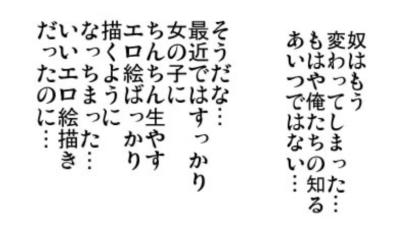 奴はもう
変わってしまった…
もはや俺たちの知る
あいつではない…
そうだな…
最近ではすっかり
女の子に
ちんちん生やす
エロ絵ばっかり
描くように
なっちまった…
いいエロ絵描き
だったのに…